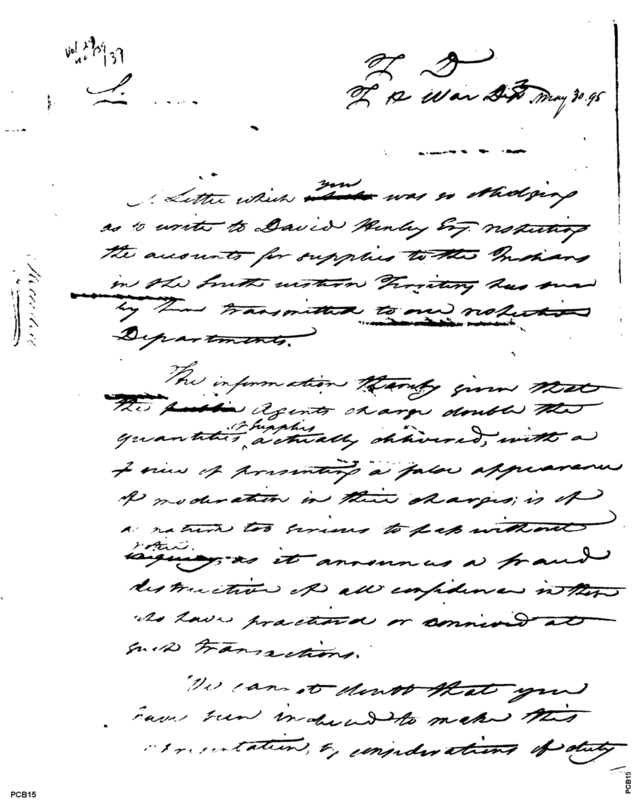 Vol 29
139
T D
T D War Dept May 30. 95
Sir
A Letter which you was so obliging
as to write to David Henley Esq. respecting
the accounts for supplies to the Indians
in the South western Territory has been
by him transmitted to our respective
Departments.
The information thereby given that
the public Agents charge double the
quantities of supplies actually delivered, with a
view of presenting a false appearance
of moderation in their charges; is of
a nature too serious to pass without
notice as it announces a fraud
destructive of all confidence in those
who have practised or connived at
such transactions.
We cannot doubt that you
have been induced to make this
representation, by considerations of duty
PCB15
PCB15